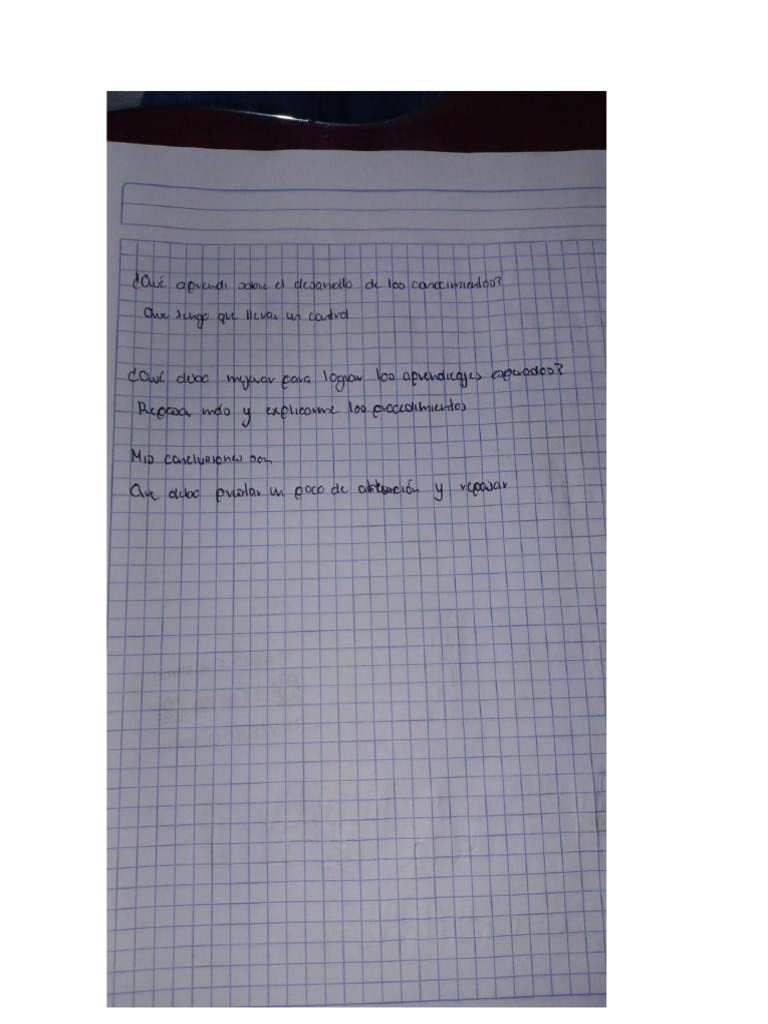 ¿Qué aprendi sobre el desarrollo de los conocimientos?
Que tengo que llevar un control
¿Qué debo mejorar para lograr los aprendizajes esperados?
Repasar más y explicarme los procedimientos
Mis conclusiones son
Que debo prestar un poco de atención y repasar